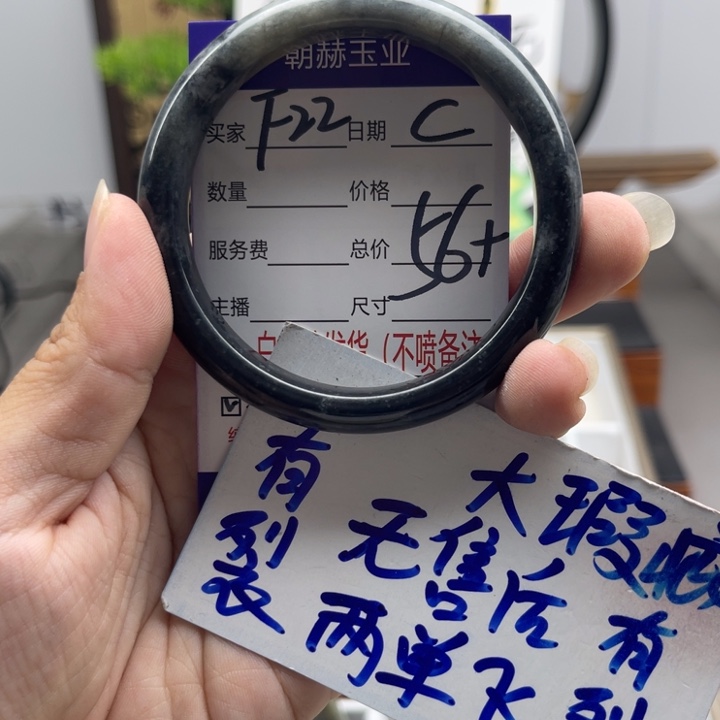 朝赫玉业
买家 F22 日期 C
数量 价格
服务费 总价 56+
主播 尺寸
发货（不喷备注
有裂
大瑕疵
无售后
有裂
两单飞